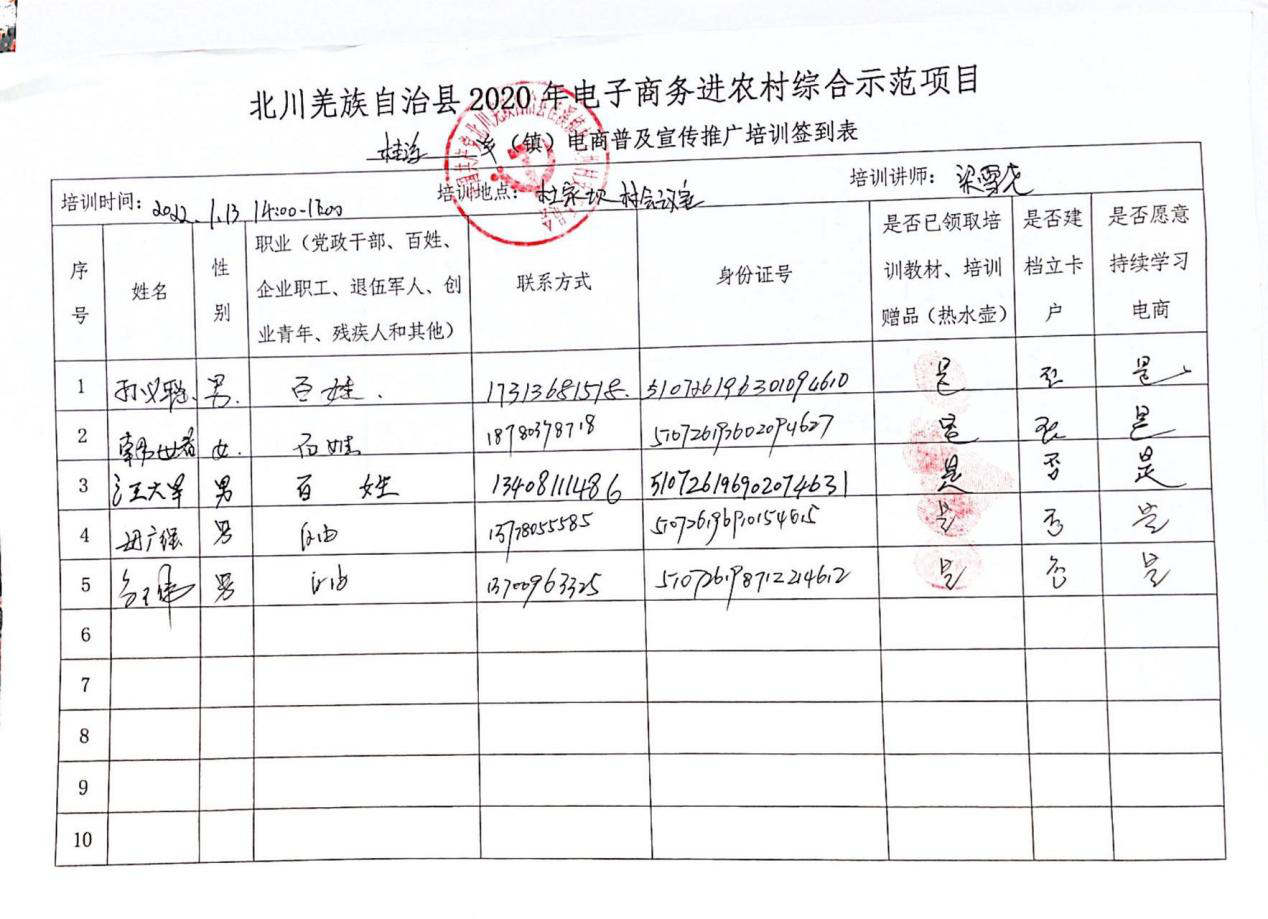 北川羌族自治县2020年电子商务进农村综合示范项目
乡（镇）电商普及宣传推广培训签到表
培训时间：2022.1.13 14:00-17:00 培训地点：杜家坝村会议室 培训讲师：梁雪尧
序号 姓名 性别 职业（党政干部、百姓、企业职工、退伍军人、创业青年、残疾人和其他） 联系方式 身份证号 是否已领取培训教材、培训赠品（热水壶） 是否建档立卡户 是否愿意持续学习电商
1 男. 百姓. 17313681518. 510726196301094610 是 否 是
2 女. 百姓 18780378718 510726193602094627 是 否 是
3 汪大军 男 百姓 13408111486 510726196902074631 是 否 是
4 母广强 男 13778055585 510726196910154615 是 否 是
5 男 13700963325 510726198712214612 是 否 是
6
7
8
9
10